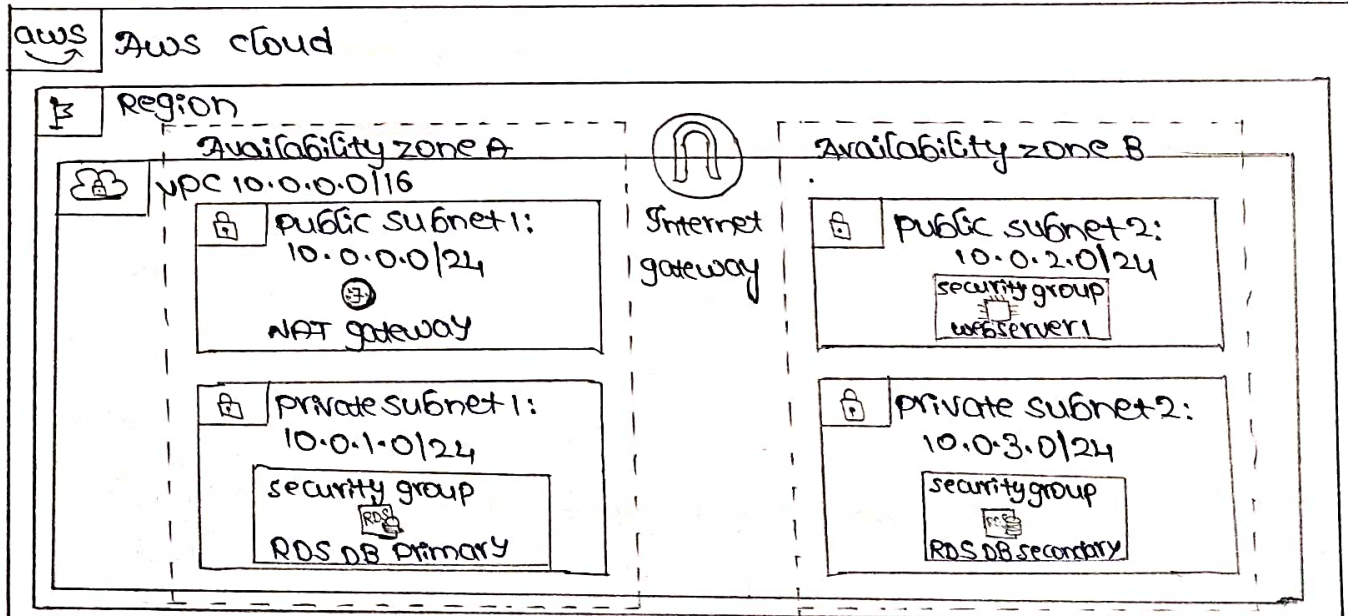 aws
Aws cloud
Region
Availability zone A
Availability zone B
VPC 10.0.0.0/16
public subnet 1:
10.0.0.0/24
NAT gateway
Internet
gateway
public subnet 2:
10.0.2.0/24
security group
webserver1
private subnet 1:
10.0.1.0/24
security group
RDS
RDS DB primary
private subnet 2:
10.0.3.0/24
security group
RDS DB secondary